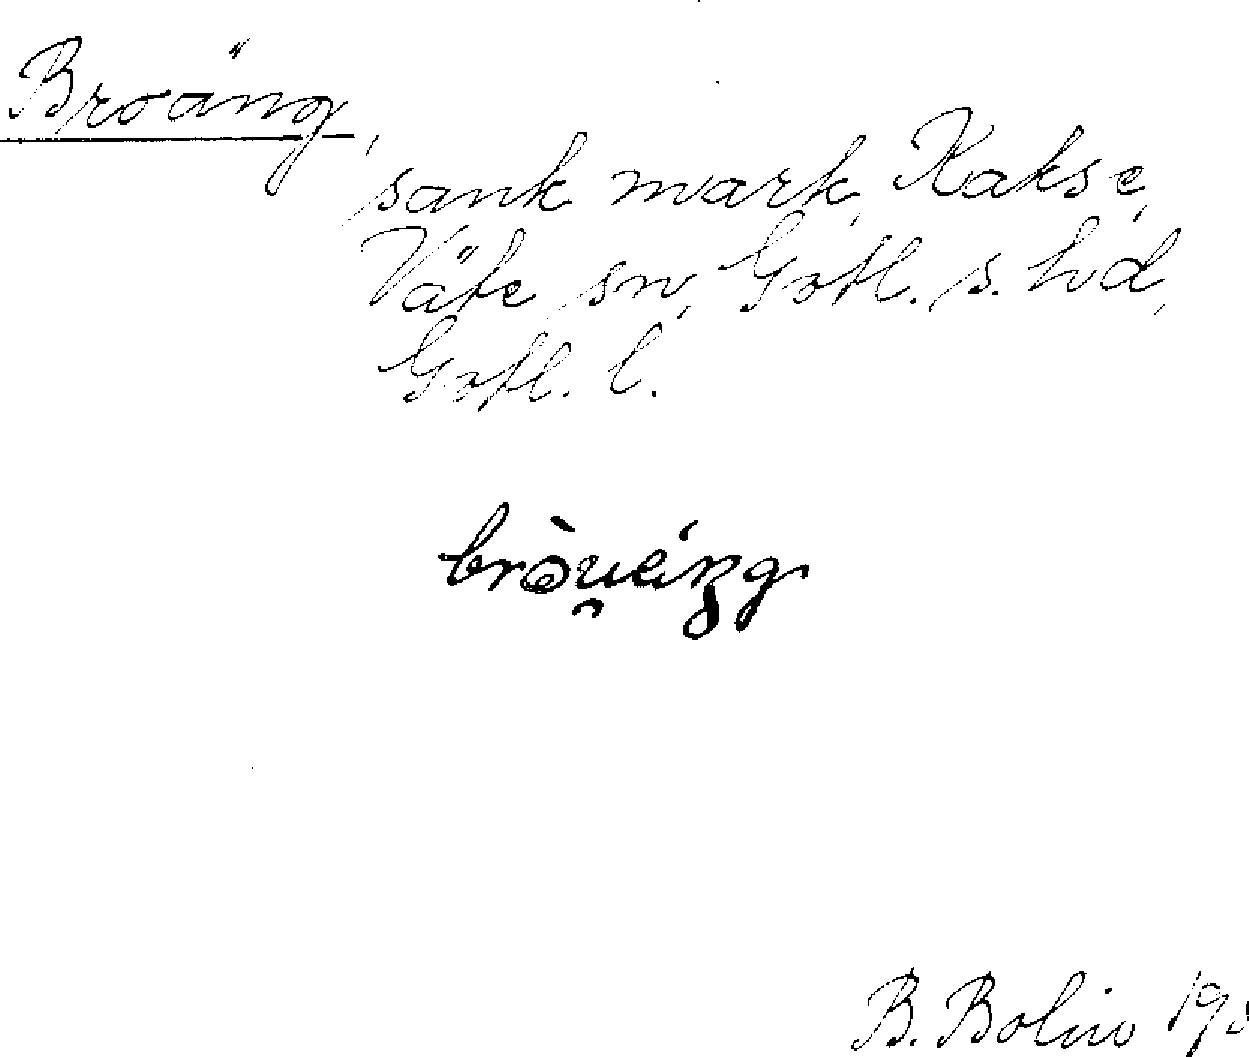 Broäng,
sank mark, Kakse,
Väte sn, Gotl. s. hd,
Gotl. l.
B. Bolin